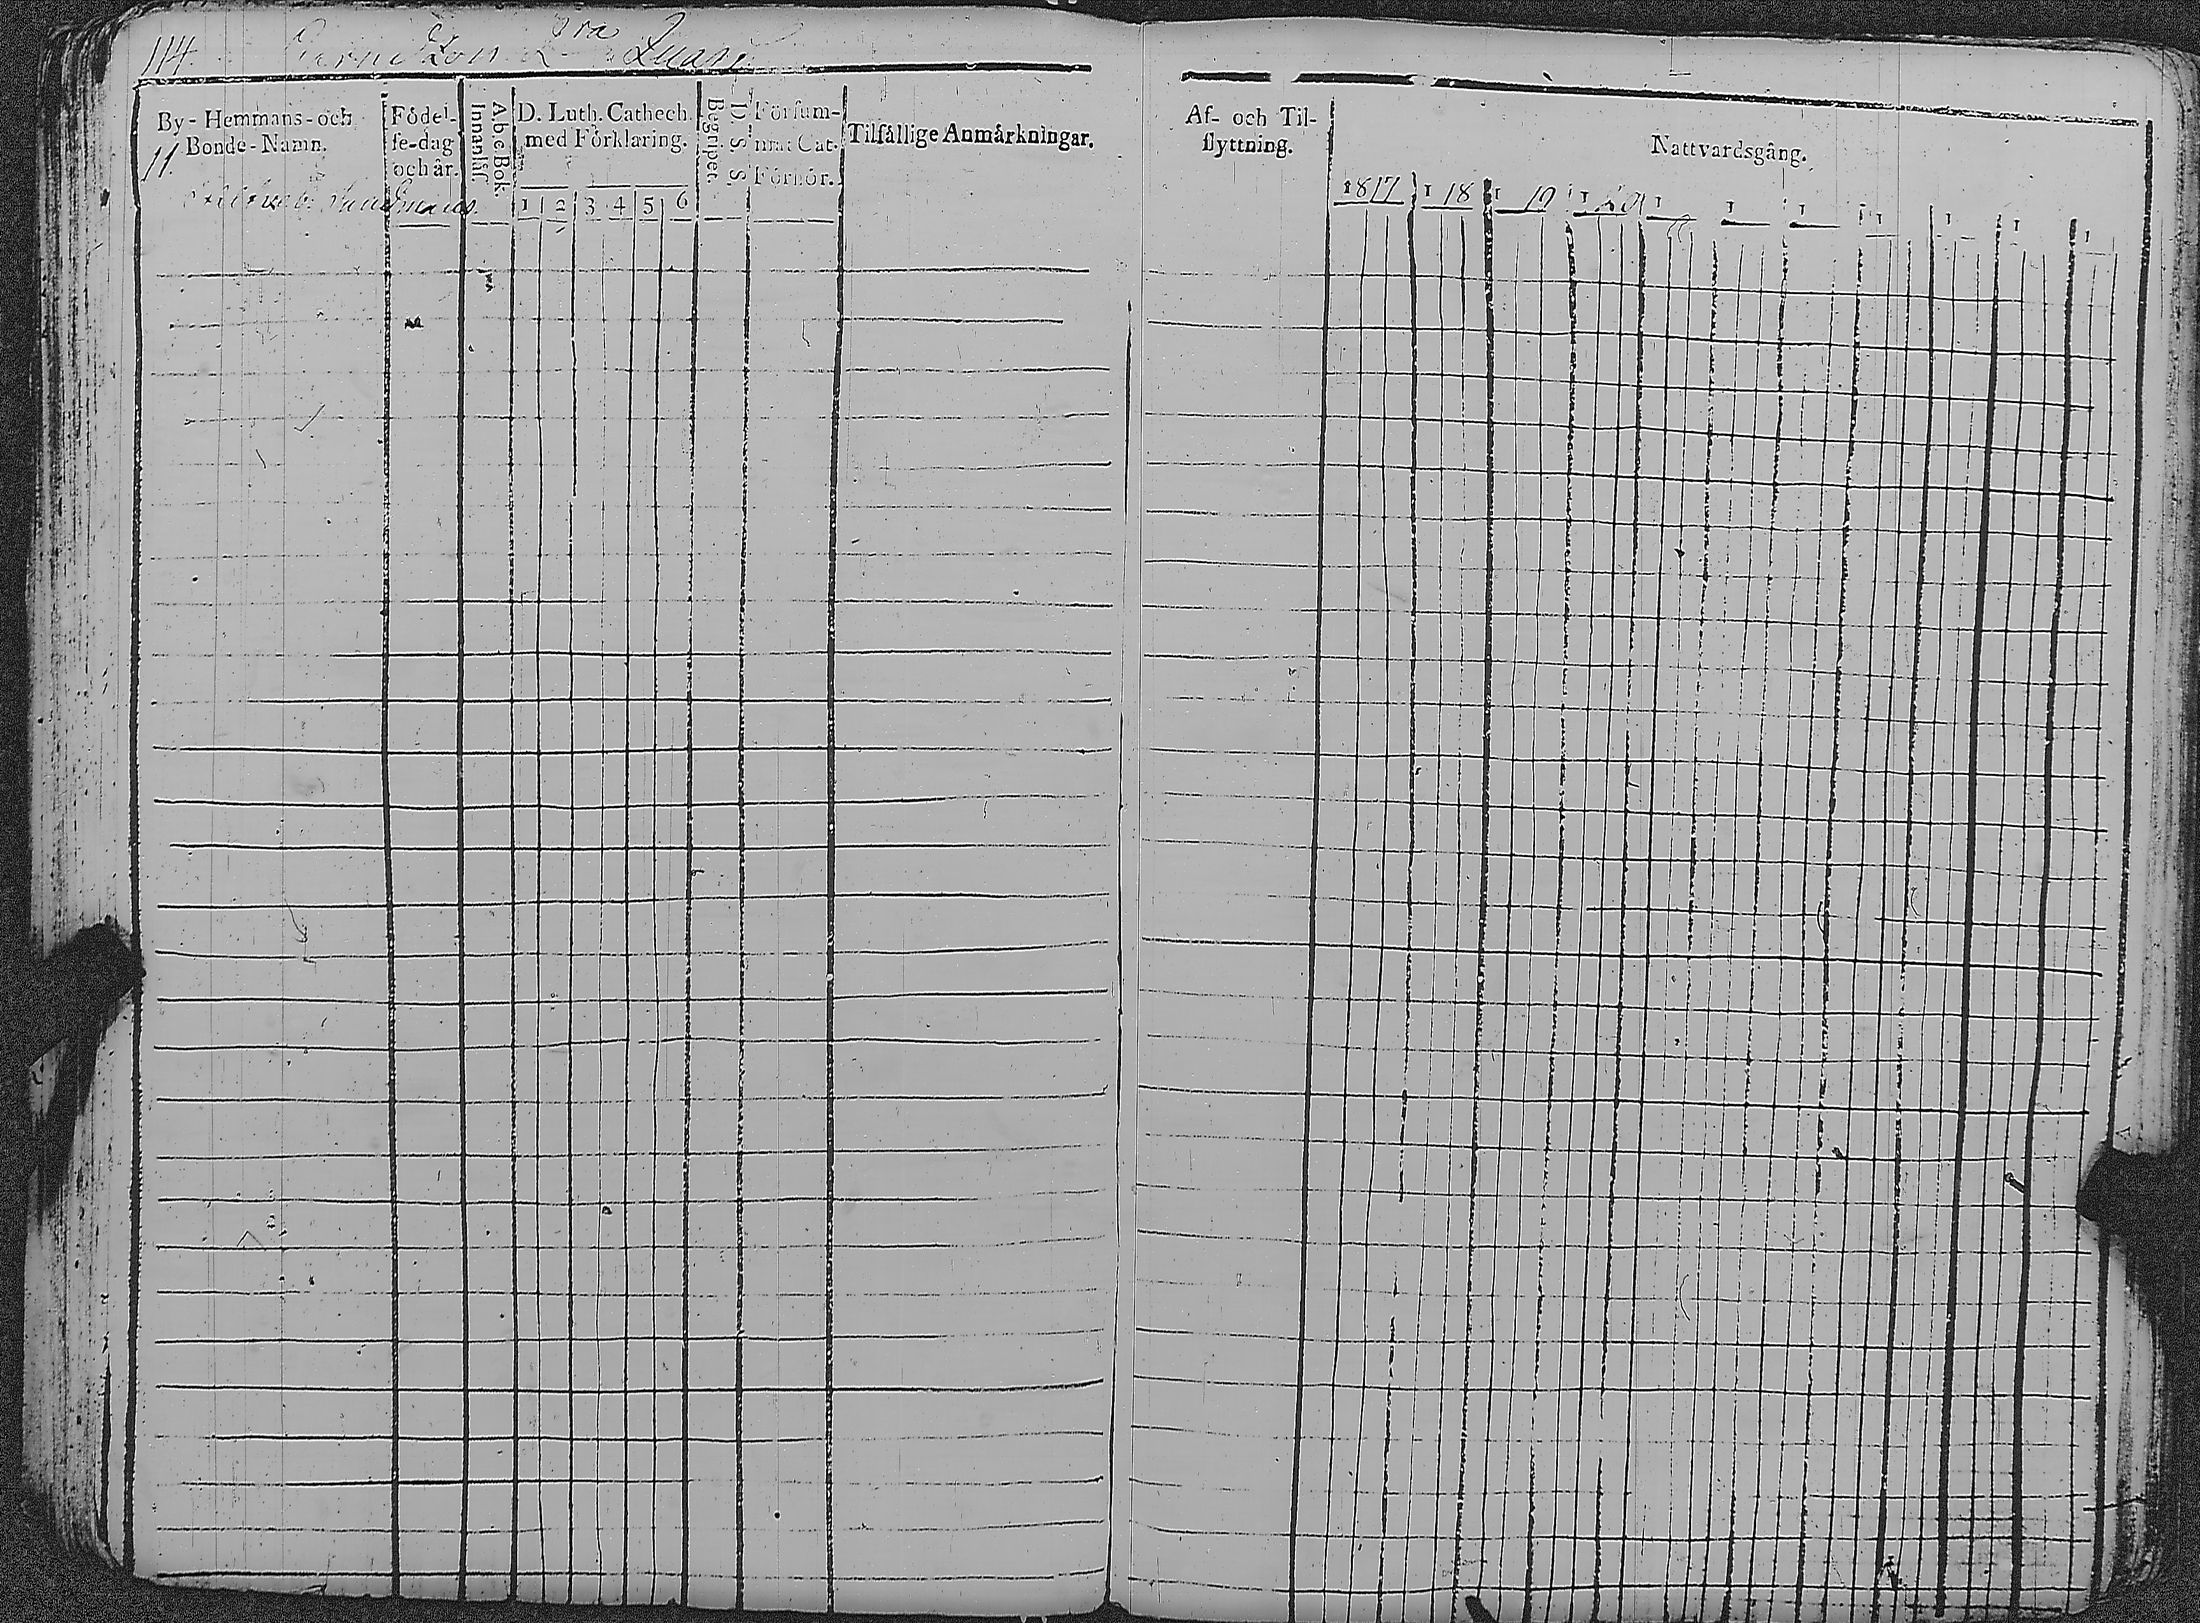 114. Qvarn
By-Hemmans-och Bonde-Namn.
11.
Födel-
se-dag
och år.
Abc Bok.
Innanläs.
D. Luth. Cathech.
med Förklaring.
1 2 3 4 5 6
Begriper.
D. S. S.
Försum-
mat Cat.
Förhör.
Tilfällige Anmärkningar.
Af- och Til-
flyttning.
Nattvardsgång.
1817 1 18 1 19 1 20 1 1 1 1 1 1 1